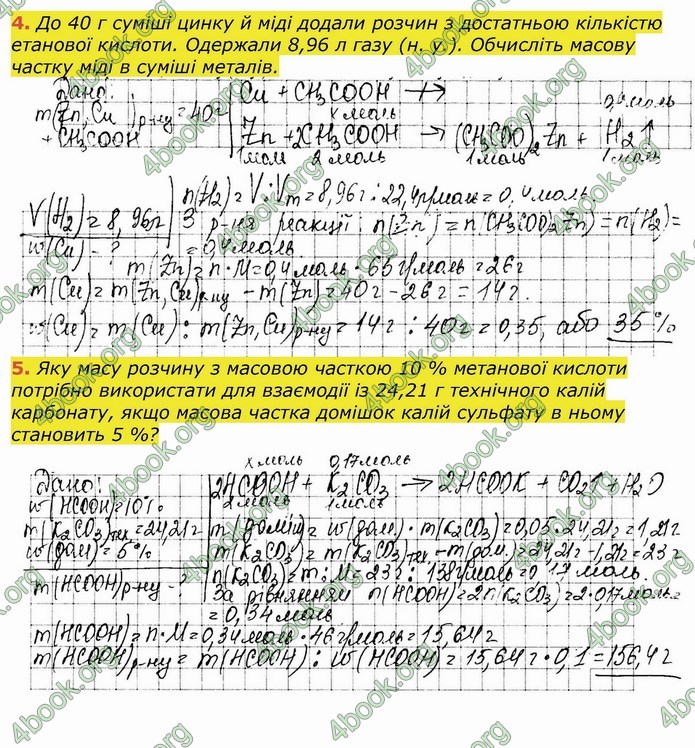 4. До 40 г суміші цинку й міді додали розчин з достатньою кількістю
етанової кислоти. Одержали 8,96 л газу (н. у.). Обчисліть масову
частку міді в суміші металів.
Дано:
Cu + CH3COOH ↛
m(Zn,Cu)р-ну = 40г
+ CH3COOH
x моль 0,4 моль
Zn + 2CH3COOH → (CH3COO)2Zn + H2↑
1моль 2 моль 1моль 1моль
V(H2) = 8,96л
w(Cu) - ?
n(H2) = V : Vm = 8,96л · 22,4л/моль = 0,4 моль.
З р-ня реакції n(Zn) = n(CH3COO)2Zn) = n(H2) =
= 0,4 моль
m(Zn) = n · M = 0,4 моль · 65 г/моль = 26г
m(Cu) = m(Zn,Cu)р-ну - m(Zn) = 40г - 26г = 14г.
w(Cu) = m(Cu) : m(Zn,Cu)р-ну = 14г : 40г = 0,35, або 35%
5. Яку масу розчину з масовою часткою 10 % метанової кислоти
потрібно використати для взаємодії із 24,21 г технічного калій
карбонату, якщо масова частка домішок калій сульфату в ньому
становить 5 %?
Дано:
w(HCOOH) = 10%
m(K2CO3)тех = 24,21г
w(дом) = 5%
m(HCOOH)р-ну - ?
x моль 0,17моль
2HCOOH + K2CO3 → 2HCOOK + CO2↑ + H2O
2моль 1моль
m(доміш) = w(дом) · m(K2CO3) = 0,05 · 24,21г = 1,21г
m(K2CO3) = m(K2CO3)тех - m(дом.) = 24,21г - 1,21г = 23г
n(K2CO3) = m : M = 23г : 138г/моль = 0,17 моль.
За рівнянням n(HCOOH) = 2n(K2CO3) = 2 · 0,17моль =
= 0,34 моль
m(HCOOH) = n · M = 0,34 моль · 46 г/моль = 15,64 г
m(HCOOH)р-ну = m(HCOOH) : w(HCOOH) = 15,64 г · 0,1 = 156,4г
4book.org